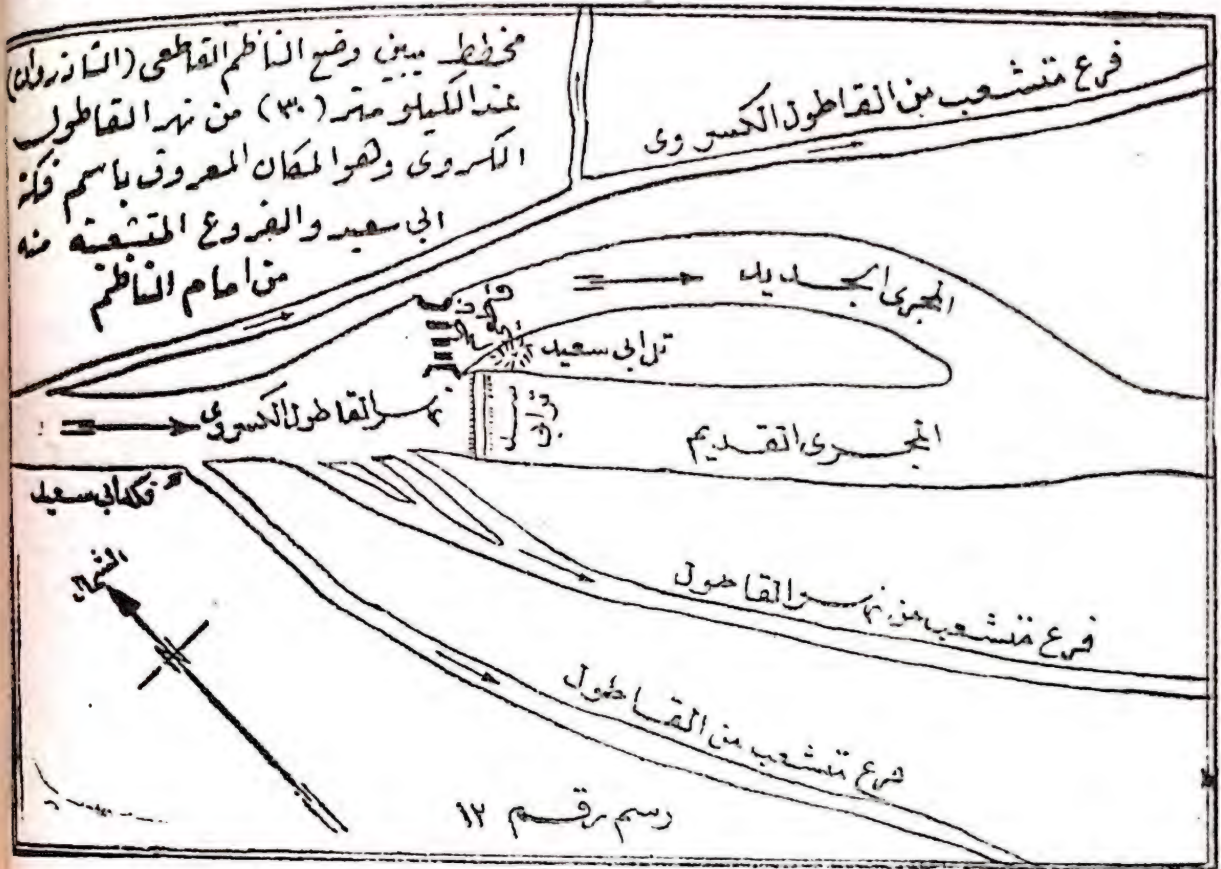 مخطط يبين وضع الناظم القاطعي (الشاذروان)
عند الكيلو متر (٣٠) من نهر القاطول
الكسروي وهو المكان المعروف باسم فكة
ابي سعيد والفروع المتشعبة منه
من امام الناظم
فرع متشعب من القاطول الكسروي
المجرى الجديد
تل ابي سعيد
نهر القاطول الكسروي
سد
تراب
المجرى القديم
فكة ابي سعيد
الشمال
فرع متشعب من نهر القاطول
فرع متشعب من القاطول
رسم رقم ١٢